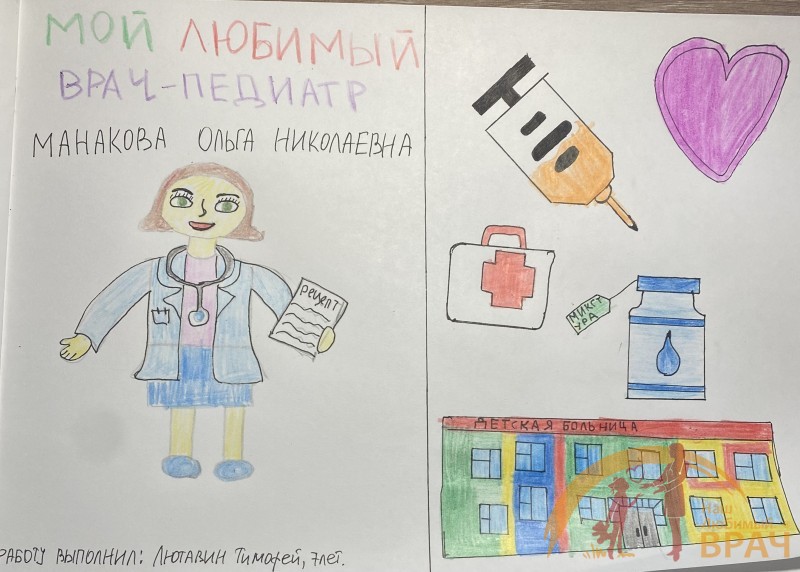 МОЙ ЛЮБИМЫЙ
ВРАЧ-ПЕДИАТР
МАНАКОВА ОЛЬГА НИКОЛАЕВНА
рецепт
РАБОТУ ВЫПОЛНИЛ: ЛЮТАВИН ТИМОФЕЙ, 7 лет.
МИКСТ
УРА
ДЕТСКАЯ БОЛЬНИЦА
Наш
Любимый
ВРАЧ